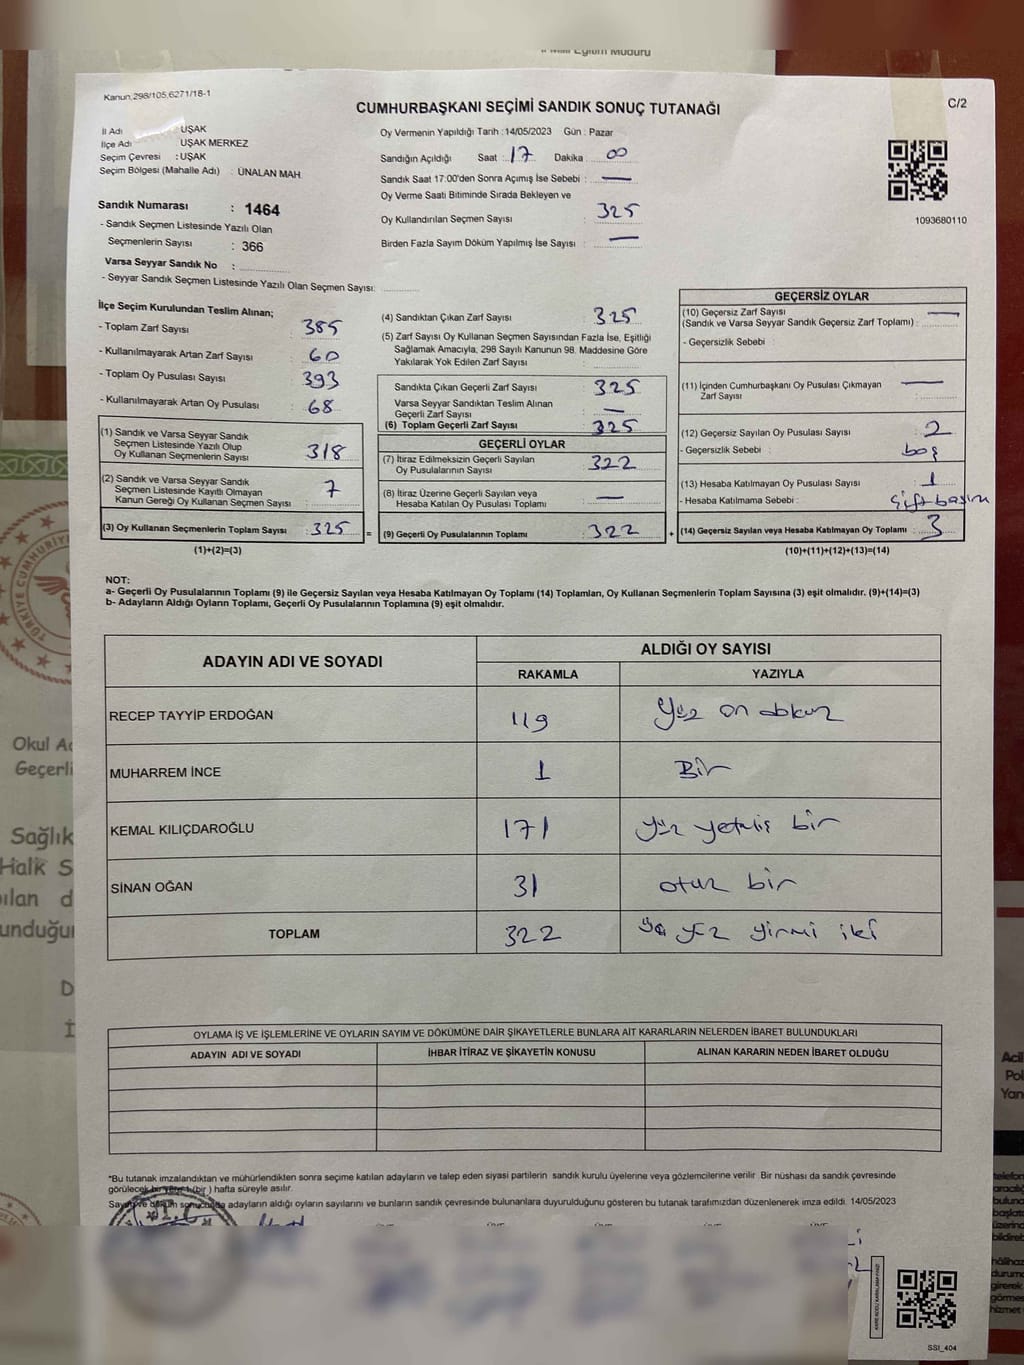 İl Milli Eğitim Müdürü
Kanun,298/105,6271/18-1
CUMHURBAŞKANI SEÇİMİ SANDIK SONUÇ TUTANAĞI
C/2
İl Adı : UŞAK
İlçe Adı : UŞAK MERKEZ
Seçim Çevresi : UŞAK
Seçim Bölgesi (Mahalle Adı) : ÜNALAN MAH.
Sandık Numarası : 1464
- Sandık Seçmen Listesinde Yazılı Olan
Seçmenlerin Sayısı : 366
Varsa Seyyar Sandık No :
- Seyyar Sandık Seçmen Listesinde Yazılı Olan Seçmen Sayısı:
Oy Vermenin Yapıldığı Tarih : 14/05/2023 Gün : Pazar
Sandığın Açıldığı Saat : 17 Dakika 00
Sandık Saat 17:00'den Sonra Açımış İse Sebebi : —
Oy Verme Saati Bitiminde Sırada Bekleyen ve
Oy Kullandırılan Seçmen Sayısı : 325
Birden Fazla Sayım Döküm Yapılmış İse Sayısı : —
1093680110
İlçe Seçim Kurulundan Teslim Alınan;
- Toplam Zarf Sayısı : 385
- Kullanılmayarak Artan Zarf Sayısı : 60
- Toplam Oy Pusulası Sayısı : 393
- Kullanılmayarak Artan Oy Pusulası : 68
(1) Sandık ve Varsa Seyyar Sandık
Seçmen Listesinde Yazılı Olup
Oy Kullanan Seçmenlerin Sayısı : 318
(2) Sandık ve Varsa Seyyar Sandık
Seçmen Listesinde Kayıtlı Olmayan
Kanun Gereği Oy Kullanan Seçmen Sayısı : 7
(3) Oy Kullanan Seçmenlerin Toplam Sayısı : 325
(1)+(2)=(3)
(4) Sandıktan Çıkan Zarf Sayısı : 325
(5) Zarf Sayısı Oy Kullanan Seçmen Sayısından Fazla İse, Eşitliği
Sağlamak Amacıyla, 298 Sayılı Kanunun 98. Maddesine Göre
Yakılarak Yok Edilen Zarf Sayısı :
Sandıkta Çıkan Geçerli Zarf Sayısı : 325
Varsa Seyyar Sandıktan Teslim Alınan
Geçerli Zarf Sayısı : —
(6) Toplam Geçerli Zarf Sayısı : 325
GEÇERLİ OYLAR
(7) İtiraz Edilmeksizin Geçerli Sayılan
Oy Pusulalarının Sayısı : 322
(8) İtiraz Üzerine Geçerli Sayılan veya
Hesaba Katılan Oy Pusulası Toplamı : —
= (9) Geçerli Oy Pusulalarının Toplamı : 322
GEÇERSİZ OYLAR
(10) Geçersiz Zarf Sayısı —
(Sandık ve Varsa Seyyar Sandık Geçersiz Zarf Toplamı) :
- Geçersizlik Sebebi :
(11) İçinden Cumhurbaşkanı Oy Pusulası Çıkmayan —
Zarf Sayısı :
(12) Geçersiz Sayılan Oy Pusulası Sayısı : 2
- Geçersizlik Sebebi : boş
(13) Hesaba Katılmayan Oy Pusulası Sayısı : 1
- Hesaba Katılmama Sebebi : Çift basım
+ (14) Geçersiz Sayılan veya Hesaba Katılmayan Oy Toplamı : 3
(10)+(11)+(12)+(13)=(14)
NOT:
a- Geçerli Oy Pusulalarının Toplamı (9) ile Geçersiz Sayılan veya Hesaba Katılmayan Oy Toplamı (14) Toplamları, Oy Kullanan Seçmenlerin Toplam Sayısına (3) eşit olmalıdır. (9)+(14)=(3)
b- Adayların Aldığı Oyların Toplamı, Geçerli Oy Pusulalarının Toplamına (9) eşit olmalıdır.
ADAYIN ADI VE SOYADI
ALDIĞI OY SAYISI
RAKAMLA YAZIYLA
RECEP TAYYİP ERDOĞAN 119 Yüz on dokuz
MUHARREM İNCE 1 Bir
KEMAL KILIÇDAROĞLU 171 Yüz yetmiş bir
SİNAN OĞAN 31 otuz bir
TOPLAM 322 Üç yüz yirmi iki
OYLAMA İŞ VE İŞLEMLERİNE VE OYLARIN SAYIM VE DÖKÜMÜNE DAİR ŞİKAYETLERLE BUNLARA AİT KARARLARIN NELERDEN İBARET BULUNDUKLARI
ADAYIN ADI VE SOYADI İHBAR İTİRAZ VE ŞİKAYETİN KONUSU ALINAN KARARIN NEDEN İBARET OLDUĞU
*Bu tutanak imzalandıktan ve mühürlendikten sonra seçime katılan adayların ve talep eden siyasi partilerin sandık kurulu üyelerine veya gözlemcilerine verilir. Bir nüshası da sandık çevresinde
görülecek bir yere 1 (bir ) hafta süreyle asılır.
Sayım ve döküm sonucunda adayların aldığı oyların sayılarını ve bunların sandık çevresinde bulunanlara duyurulduğunu gösteren bu tutanak tarafımızdan düzenlenerek imza edildi. 14/05/2023
T.C.
SSI_404
TÜRKİYE CUMHURİYETİ
Okul
Geçerli
Sağlık
Halk S
Acil
Pol
Yan